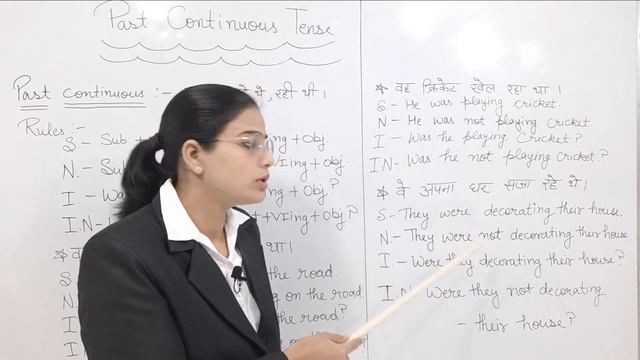 Past Continuous Tense
Past continuous :- थे, रही थी।
Rules:-
S.- Sub + ing + Obj
N.- Sub VIing + Obj.
I.- Wa ing + Obj.?
I.N- +VIing + Obj.?
था।
S the road.
N. g on the road
I the road?
I
* वह क्रिकेट खेल रहा था।
S.- He was playing cricket.
N- He was not playing cricket
I - Was he playing cricket?
IN- Was he not playing cricket.?
* वे अपना घर सजा रहे थे।
S.- They were decorating their house.
N.- They were not decorating their house
I.- Were they decorating their house?
I.N. Were they not decorating
- their house?